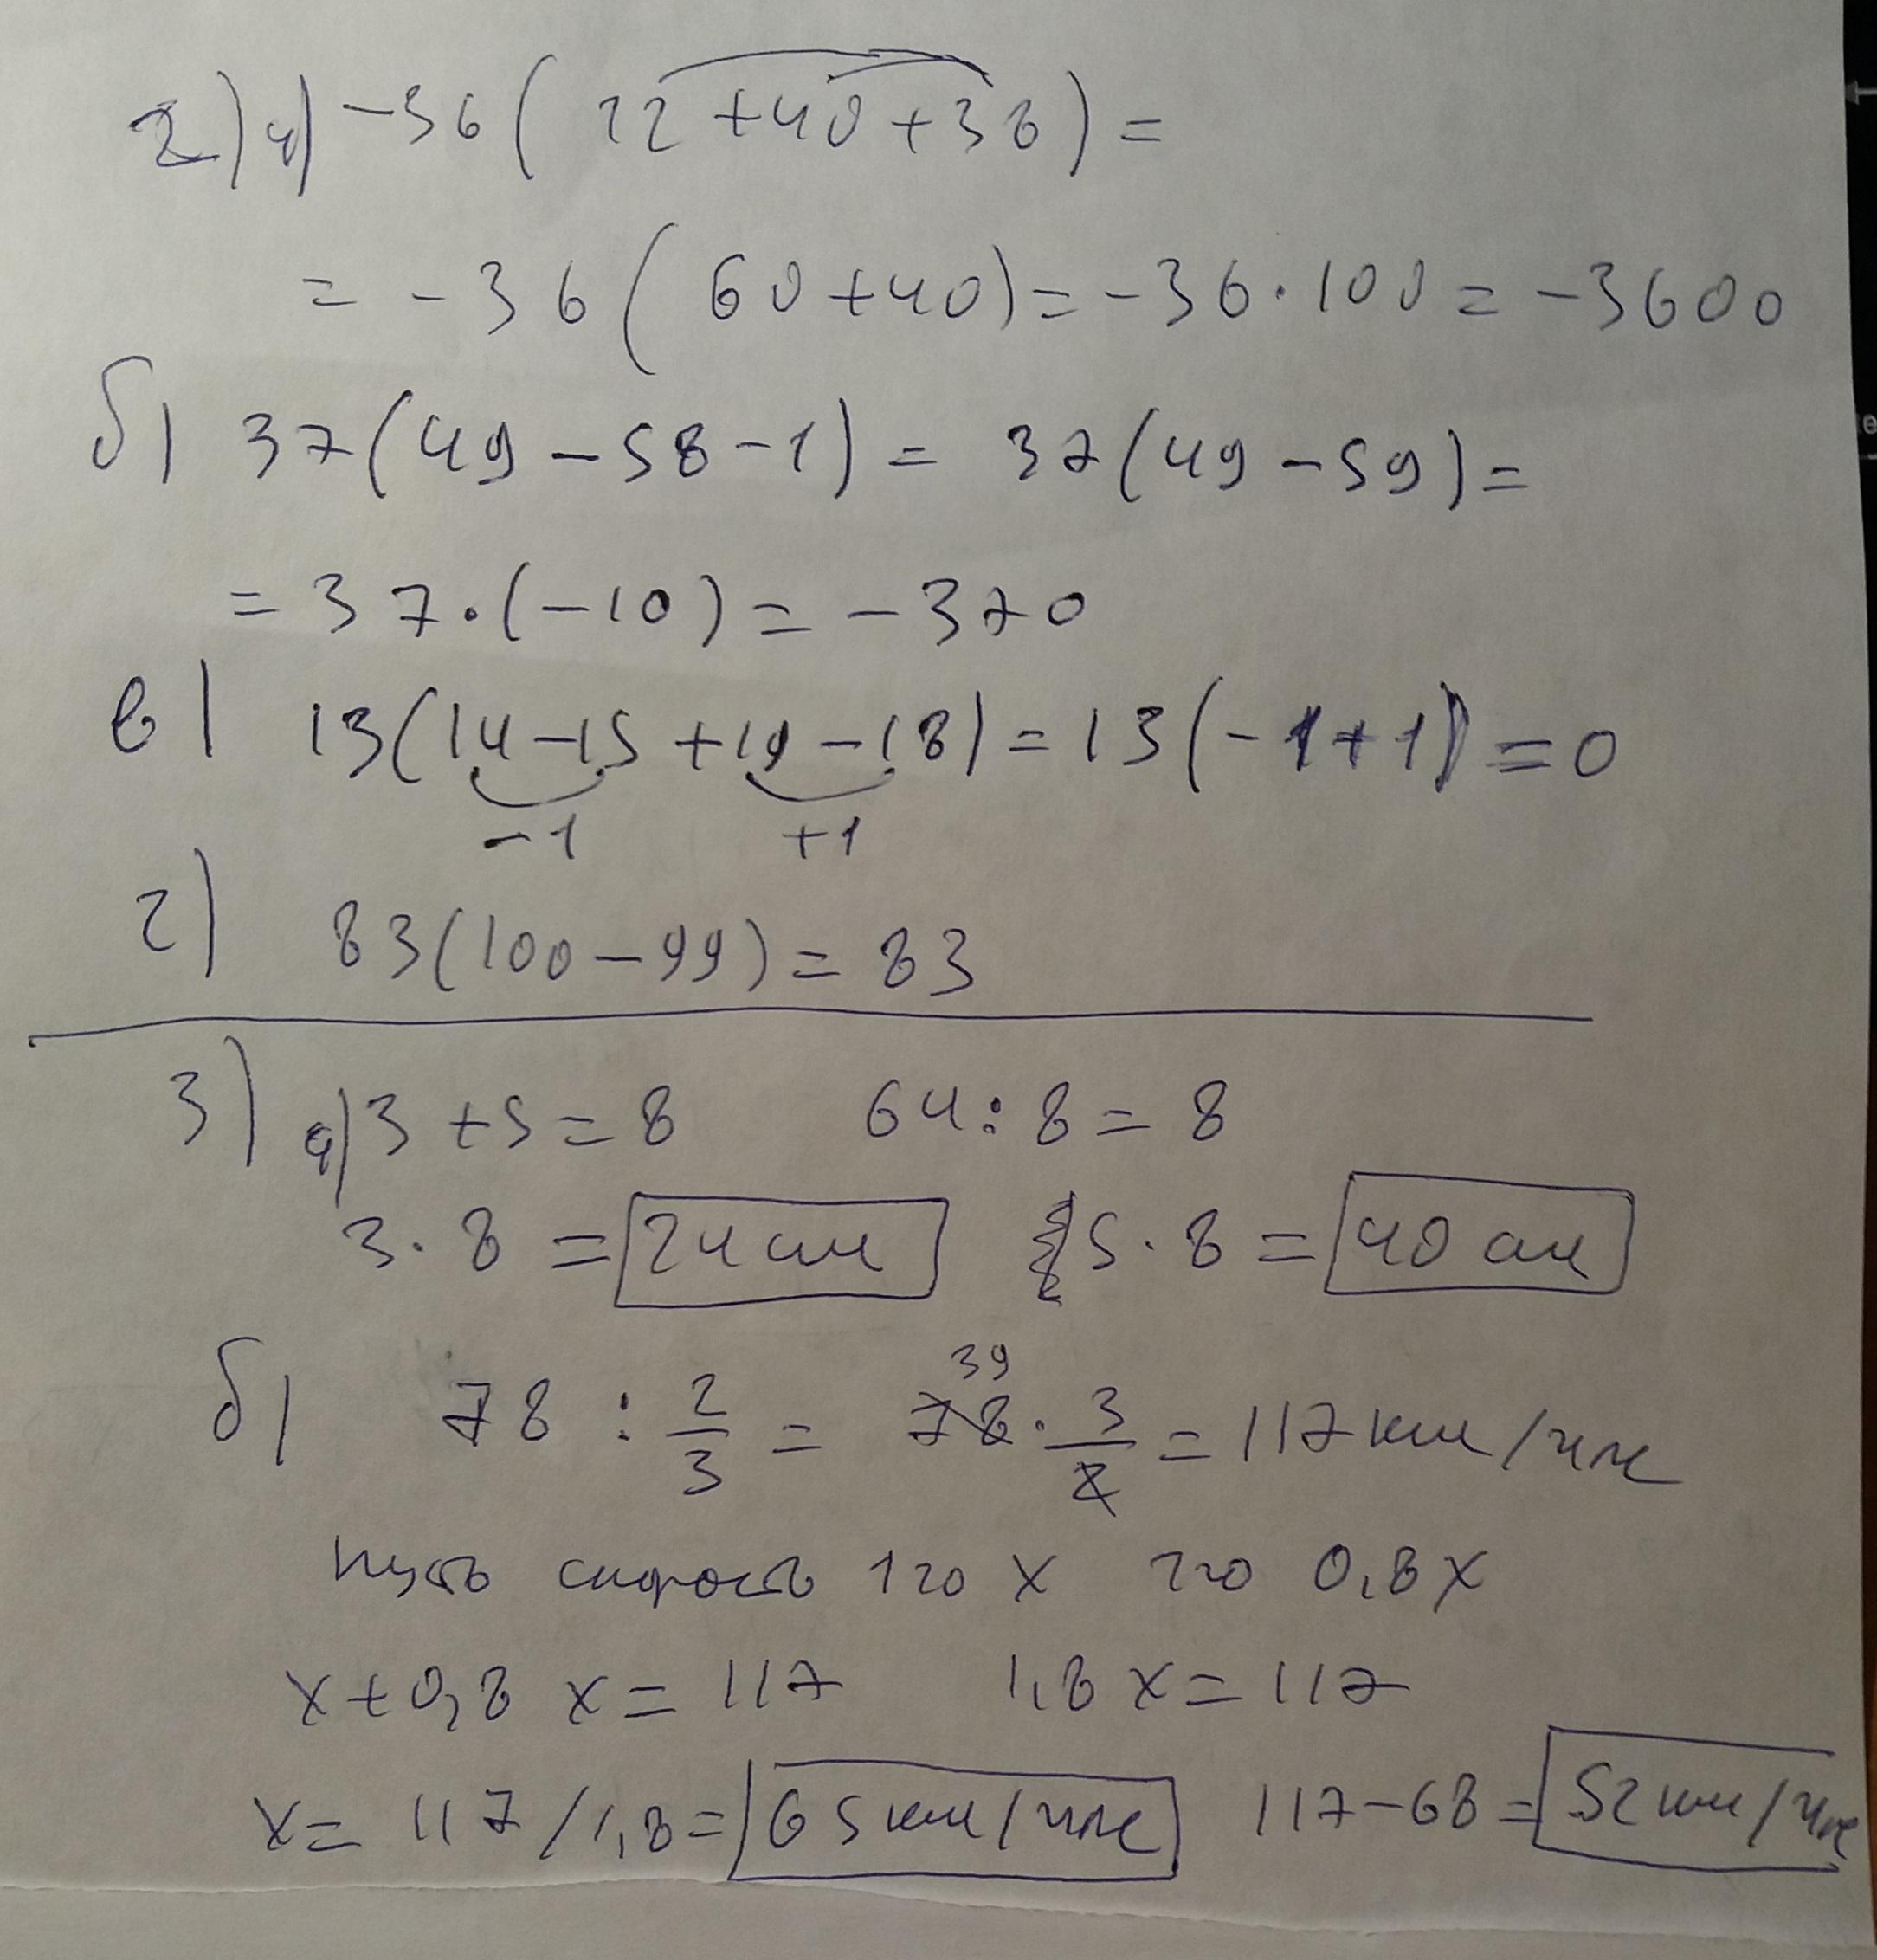 2) а) -36 ( 22 +40 +38 ) =
= -36 ( 60+40) = -36 · 100 = -3600
б) 37(49-58-1) = 37(49-59) =
= 37·(-10) = -370
в) 13(14-15 +19-18) = 13(-1+1) = 0
-1 +1
г) 83(100-99) = 83
3) а) 3+5=8 64:8=8
3·8 = 24 см 5·8 = 40 см
39
б) 78 : 2/3 = 78 · 3/2 = 117 км/час
пусть скорость 1го x 2го 0,8x
x+0,8 x = 117 1,8 x = 117
x = 117/1,8 = 65 км/час 117-68 = 52 км/час